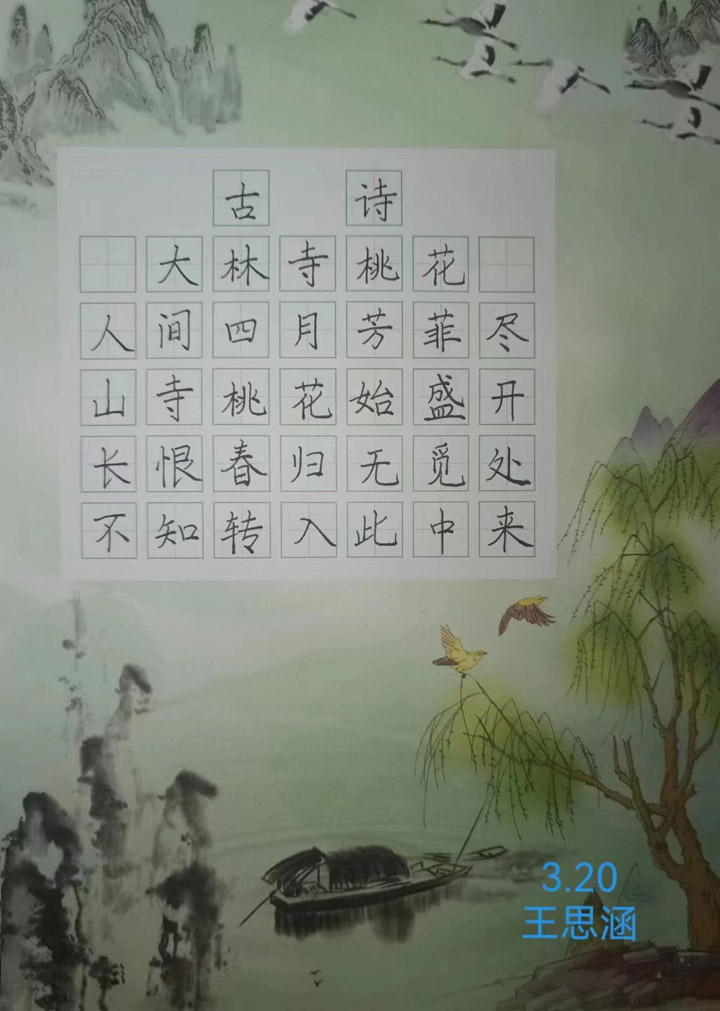 古诗
大林寺桃花
人间四月芳菲尽
山寺桃花始盛开
长恨春归无觅处
不知转入此中来
3.20
王思涵